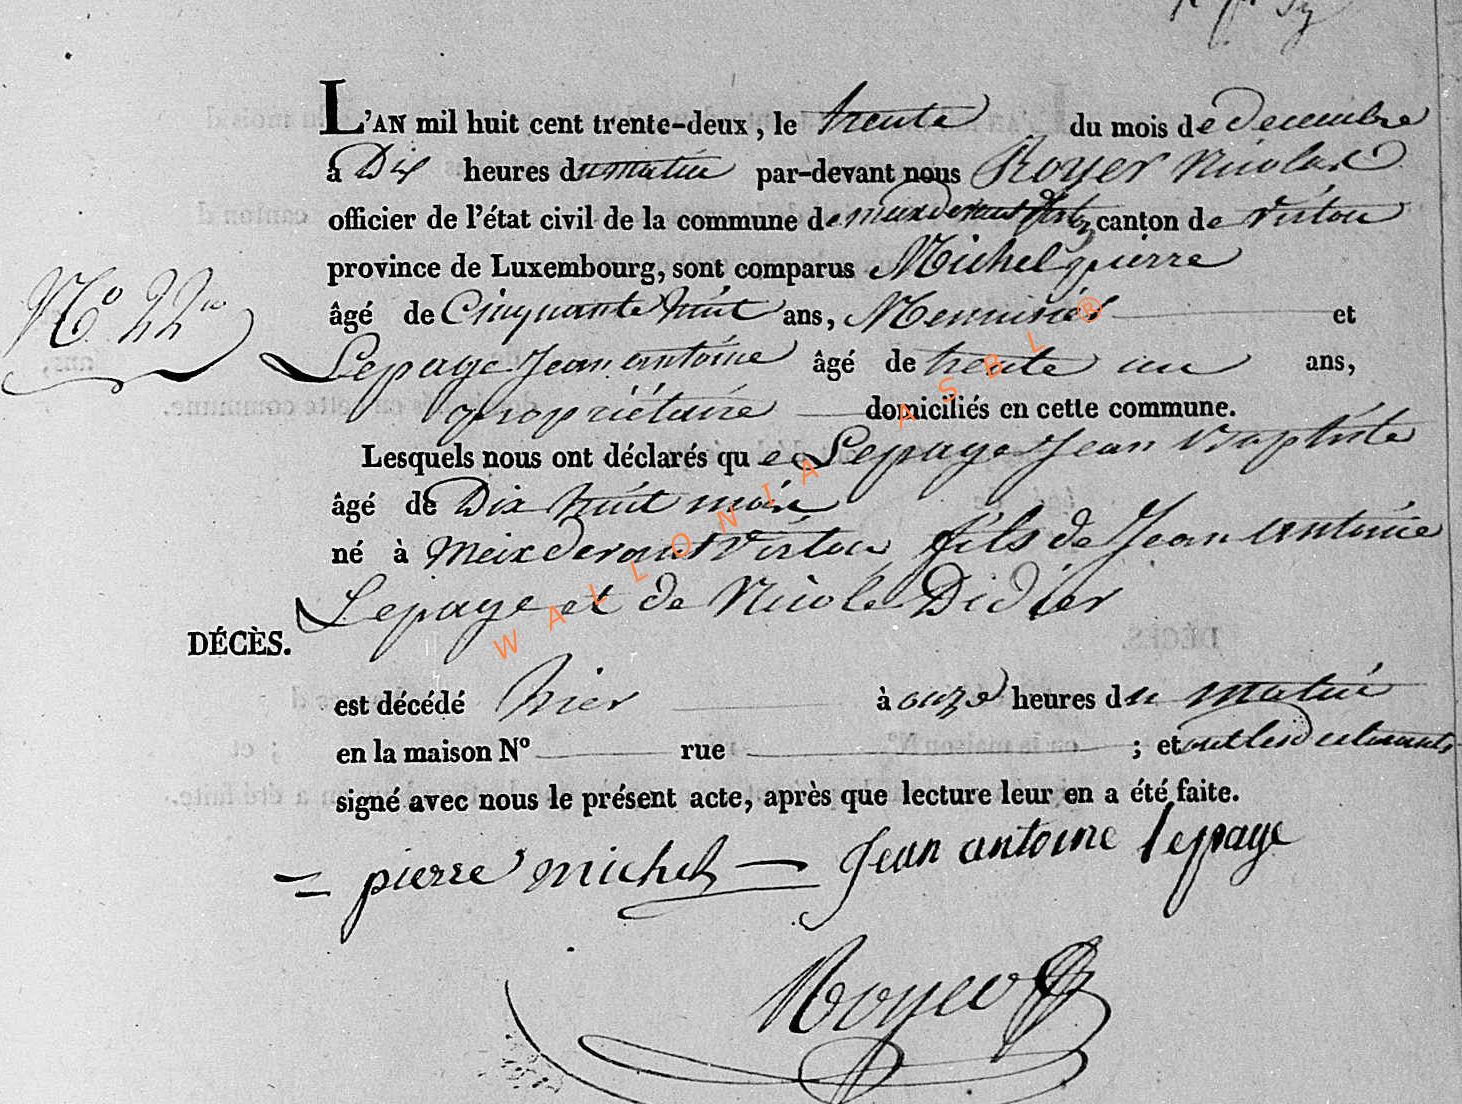 L'AN mil huit cent trente-deux, le trente du mois de decembre
à Dix heures du matin par-devant nous Royer Nicolas
officier de l'état civil de la commune de meix devant virton canton de virton
province de Luxembourg, sont comparus Michel pierre
âgé de Cinquante huit ans, Menuisier et
N° 22
Lepage Jean antoine âgé de trente un ans,
propriétaire domiciliés en cette commune.
Lesquels nous ont déclarés que Lepage Jean Baptiste
âgé de Dix huit mois
né à Meix devant Virton fils de Jean antoine
Lepage et de Nicole Didier
DÉCÈS.
est décédé hier à onze heures du matin
en la maison N° rue ; et ont les declarants
signé avec nous le présent acte, après que lecture leur en a été faite.
pierre michel Jean antoine lepage
Royer
WALLONIA ASBL ®